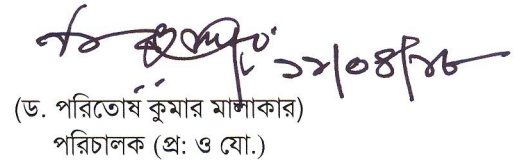 ১২/০৪/১৮
(ড. পরিতোষ কুমার মালাকার)
পরিচালক (প্র: ও যো.)